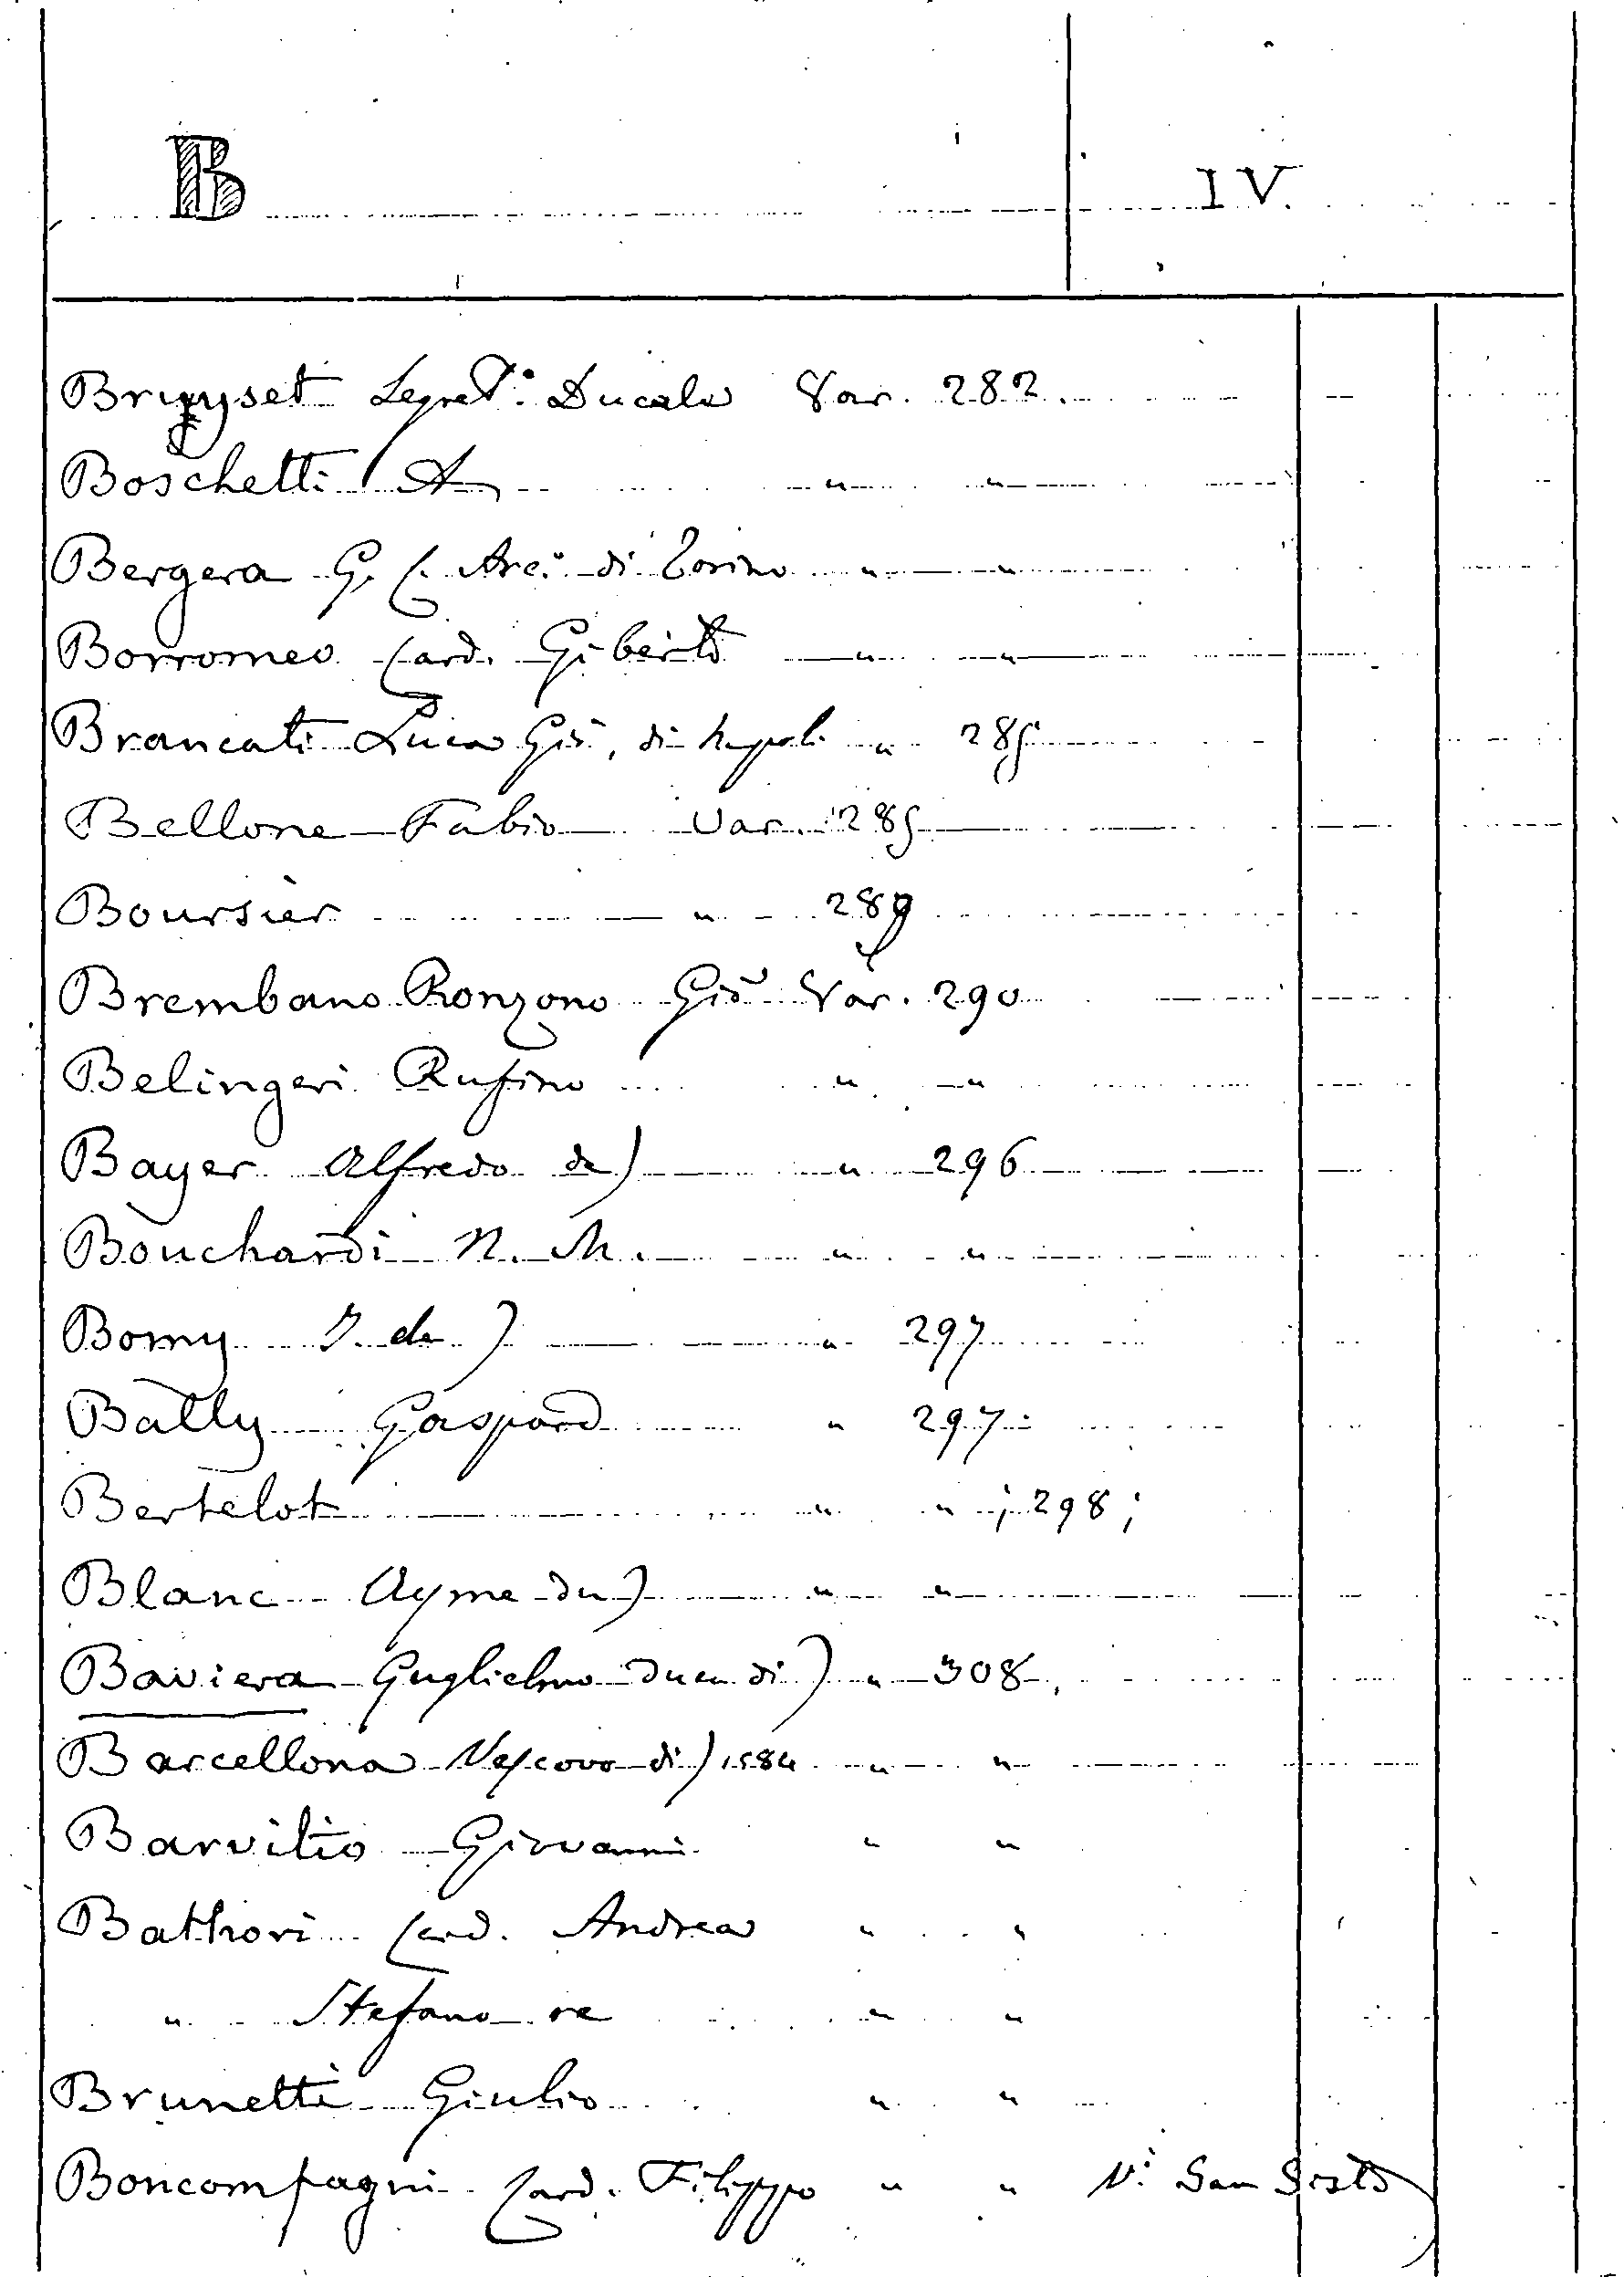 B
IV.
Bruyset Segret.° Ducale Var. 282.
Boschetti A. " "
Bergera G. C. Arc.° di Torino " "
Borromeo Card. Giberto " "
Brancati Luca Giò, di Napoli " 285
Bellone Fabio Var. 285
Boursier " 289
Brembano Ronzono Giò Var. 290
Belingeri Rufino " "
Bayer Alfredo de) " 296
Bouchardi N. M. " "
Bomy J. de) " 297
Bally Gaspard " 297.
Bertelot " " ; 298 ;
Blanc Ayme du) " "
Baviera Guglielmo Duca di) " 308.
Barcellona Vescovo di) 1584 " "
Barvitio Giovanni " "
Bathori Card. Andrea " "
" Stefano re " "
Brunetti Giulio " "
Boncompagni Card. Filippo " " V: San Sisto)